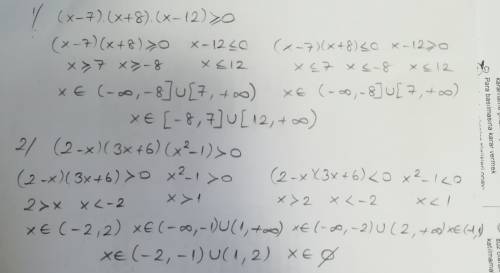 1/ (x-7).(x+8).(x-12)⩾0
(x-7)(x+8)⩾0 x-12≤0 (x-7)(x+8)≤0 x-12⩾0
x⩾7 x⩾-8 x≤12 x≤7 x≤-8 x≤12
x∈(-∞,-8]∪[7,+∞) x∈(-∞,-8]∪[7,+∞)
x∈[-8,7]∪[12,+∞)
2/ (2-x)(3x+6)(x²-1)>0
(2-x)(3x+6)>0 x²-1>0 (2-x)(3x+6)<0 x²-1<0
2>x x<-2 x>1 x>2 x<-2 x<1
x∈(-2,2) x∈(-∞,-1)∪(1,+∞) x∈(-∞,-2)∪(2,+∞) x∈(-1,1)
x∈(-2,-1)∪(1,2) x∈∅
Para basılmasına karar vermek